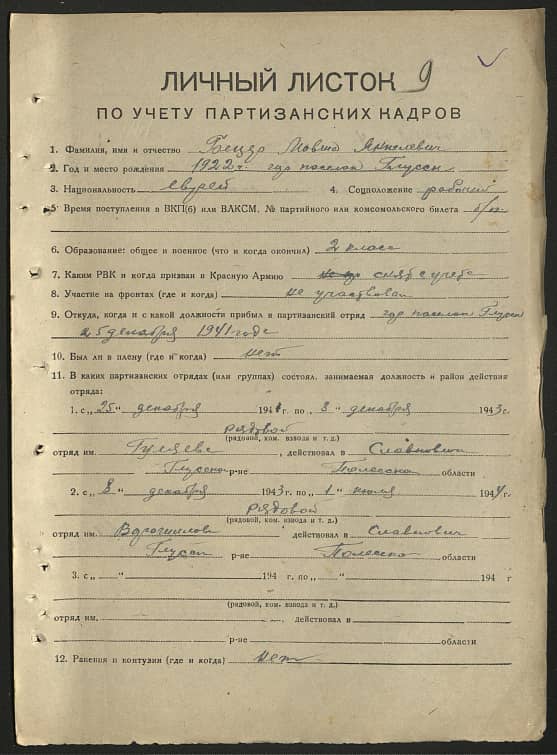 9
ЛИЧНЫЙ ЛИСТОК
ПО УЧЕТУ ПАРТИЗАНСКИХ КАДРОВ
1. Фамилия, имя и отчество Мовша Янкелевич
2. Год и место рождения 1922 г. гор поселок Глусск
3. Национальность еврей 4. Соцположение рабочий
5. Время поступления в ВКП(б) или ВЛКСМ, № партийного или комсомольского билета б/п
6. Образование: общее и военное (что и когда окончил) 2 класса
7. Каким РВК и когда призван в Красную Армию снят с учета
8. Участие на фронтах (где и когда) не участвовал
9. Откуда, когда и с какой должности прибыл в партизанский отряд гор поселок Глусск
25 декабря 1941 года
10. Был ли в плену (где и когда) нет
11. В каких партизанских отрядах (или группах) состоял, занимаемая должность и район действия
отряда:
1. с „25" декабря 1941 г. по „ 8 " декабря 1943 г.
рядовой
(рядовой, ком. взвода и т. д.)
отряд им. , действовал в Славкович
Глусско р-не Полесско области
2. с „8" декабря 1943 г. по „1" июля 1944 г.
рядовой
(рядовой, ком. взвода и т. д.)
отряд им. Ворошилова действовал в Славкович
Глусск р-не Полесско области
3. с „ " 194 г. по „ " 194 г
(рядовой, ком. взвода и т. д.)
отряд им. , действовал в
р-не области
12. Ранения и контузии (где и когда) нет